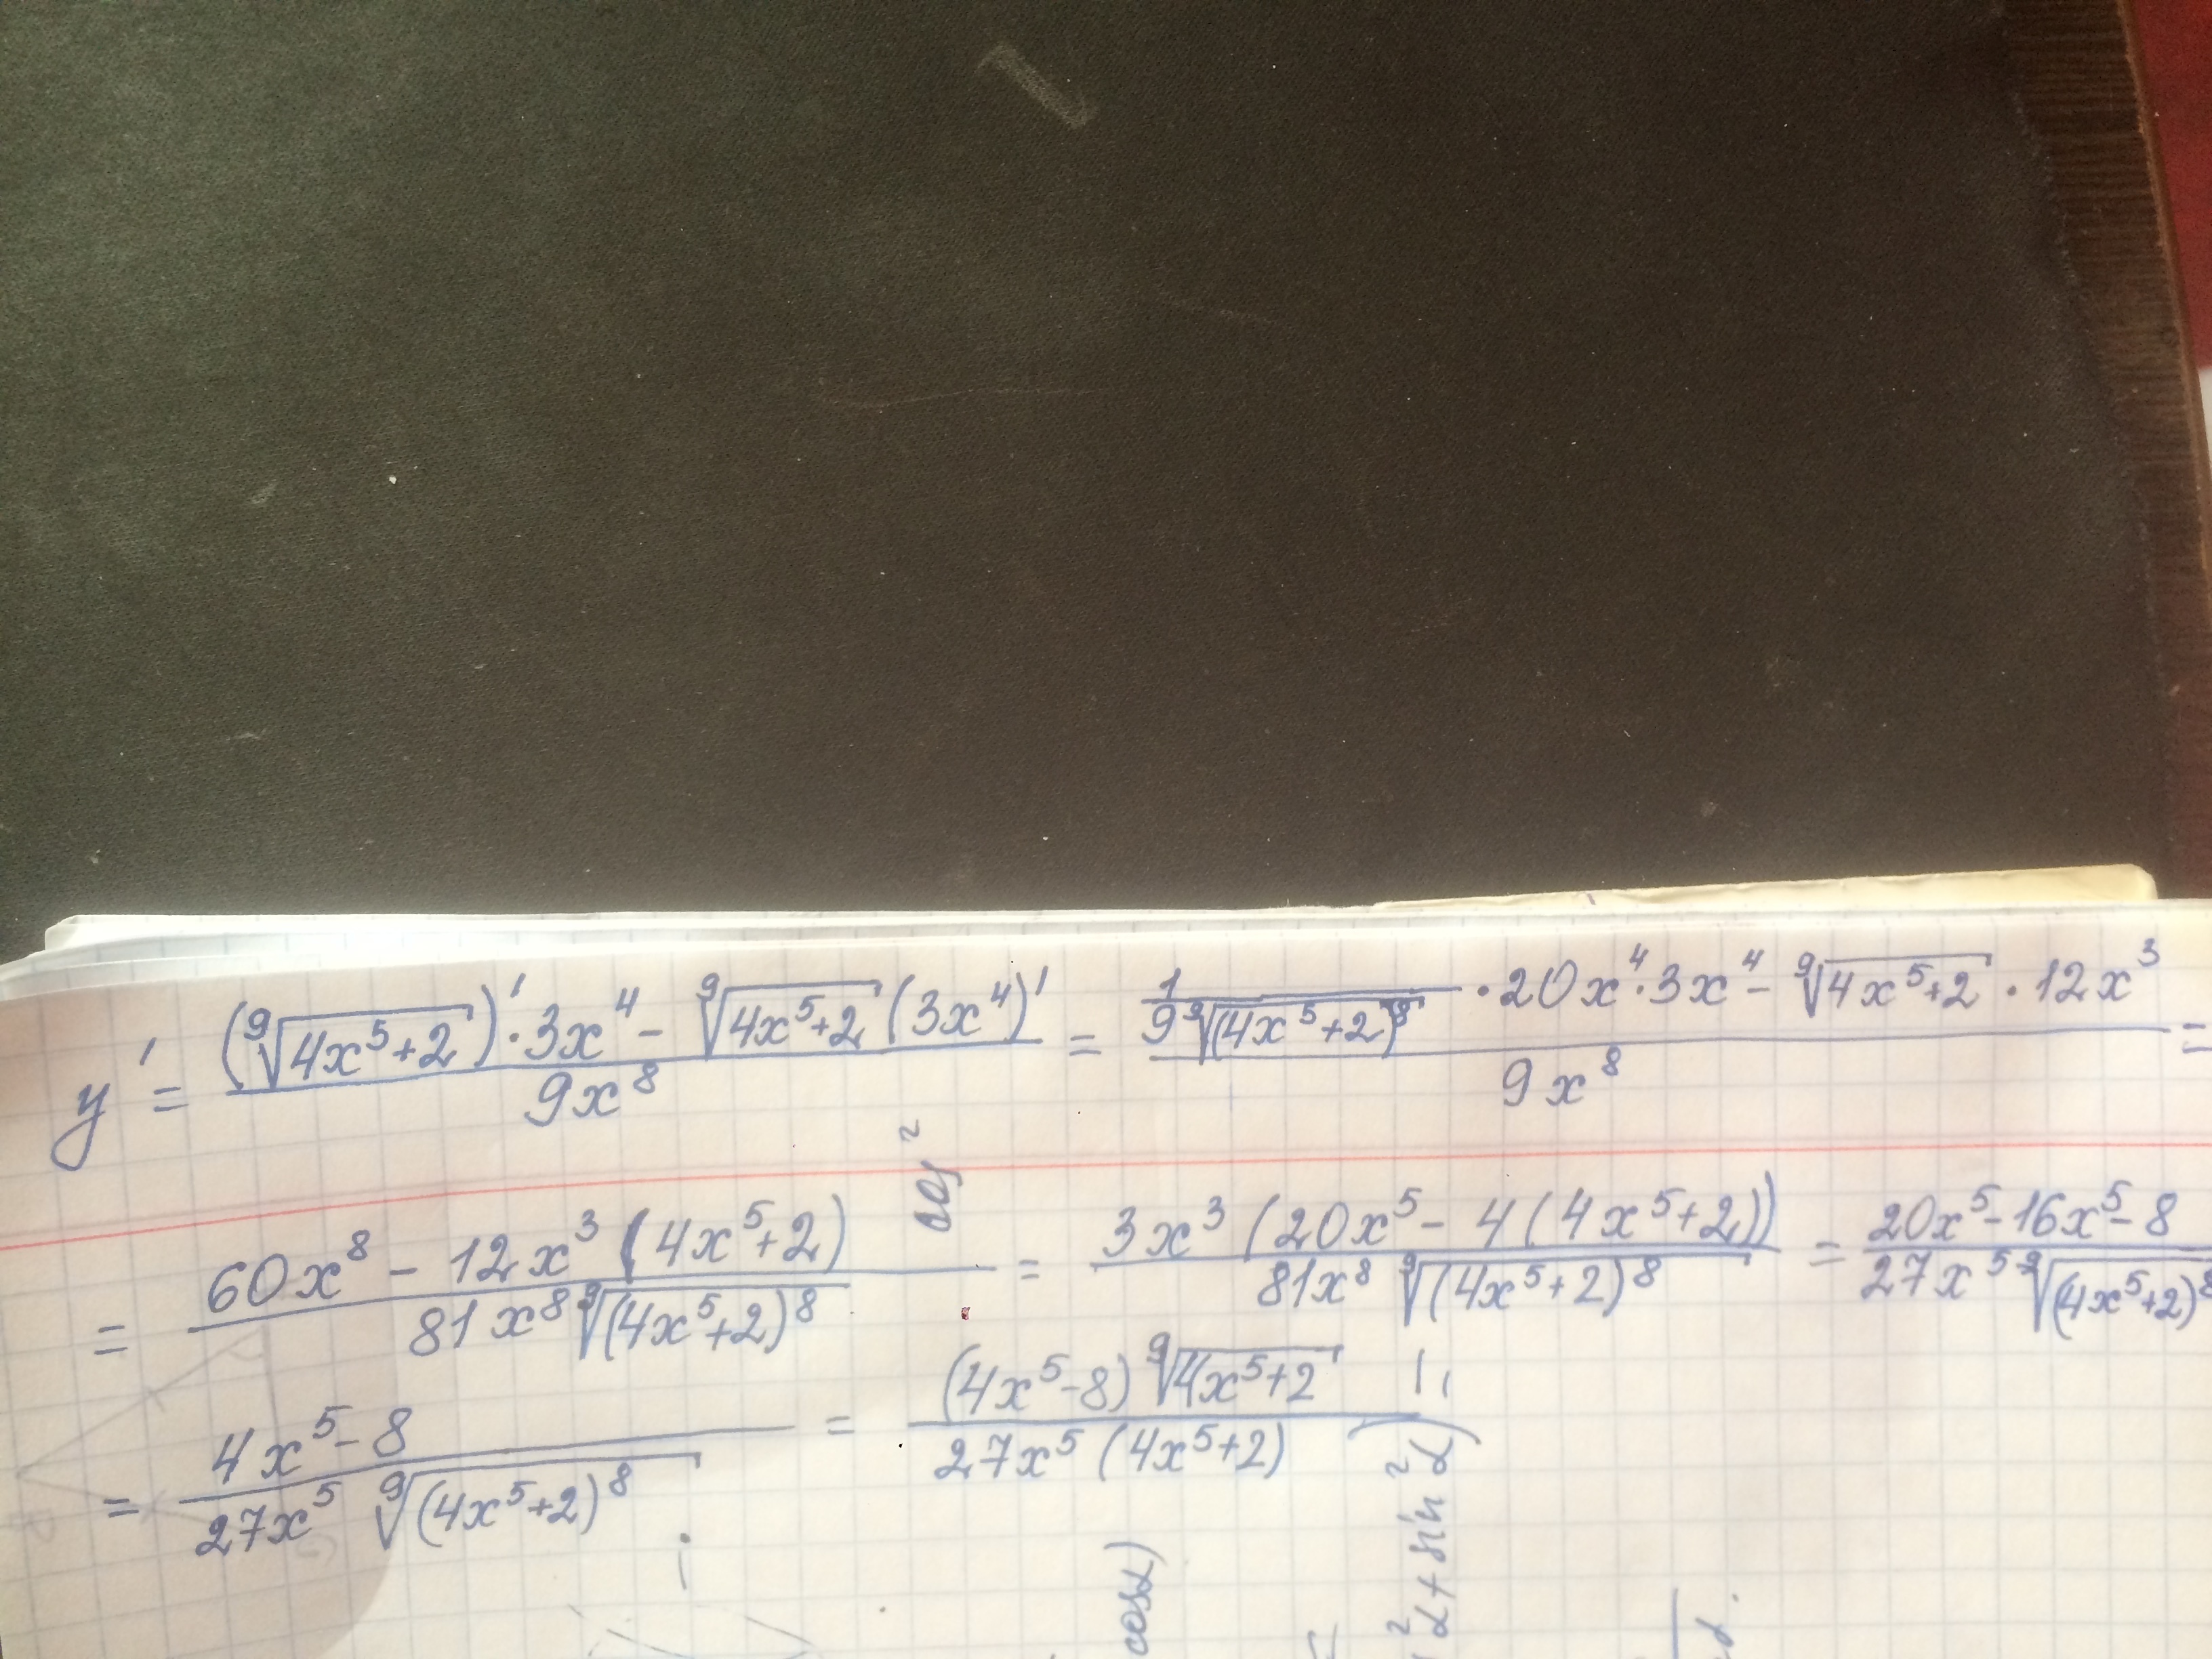 y' = ((⁹√(4x⁵+2))' · 3x⁴ - ⁹√(4x⁵+2) (3x⁴)') / 9x⁸ = (1 / 9⁹√((4x⁵+2)⁸) · 20x⁴ · 3x⁴ - ⁹√(4x⁵+2) · 12x³) / 9x⁸ =
= (60x⁸ - 12x³(4x⁵+2)) / 81x⁸ ⁹√((4x⁵+2)⁸) = 3x³(20x⁵ - 4(4x⁵+2)) / 81x⁸ ⁹√((4x⁵+2)⁸) = (20x⁵ - 16x⁵ - 8) / 27x⁵ ⁹√((4x⁵+2)⁸)
= (4x⁵ - 8) / 27x⁵ ⁹√((4x⁵+2)⁸) = (4x⁵-8) ⁹√(4x⁵+2) / 27x⁵ (4x⁵+2)
cos²
cosα)
²α + sin²α)